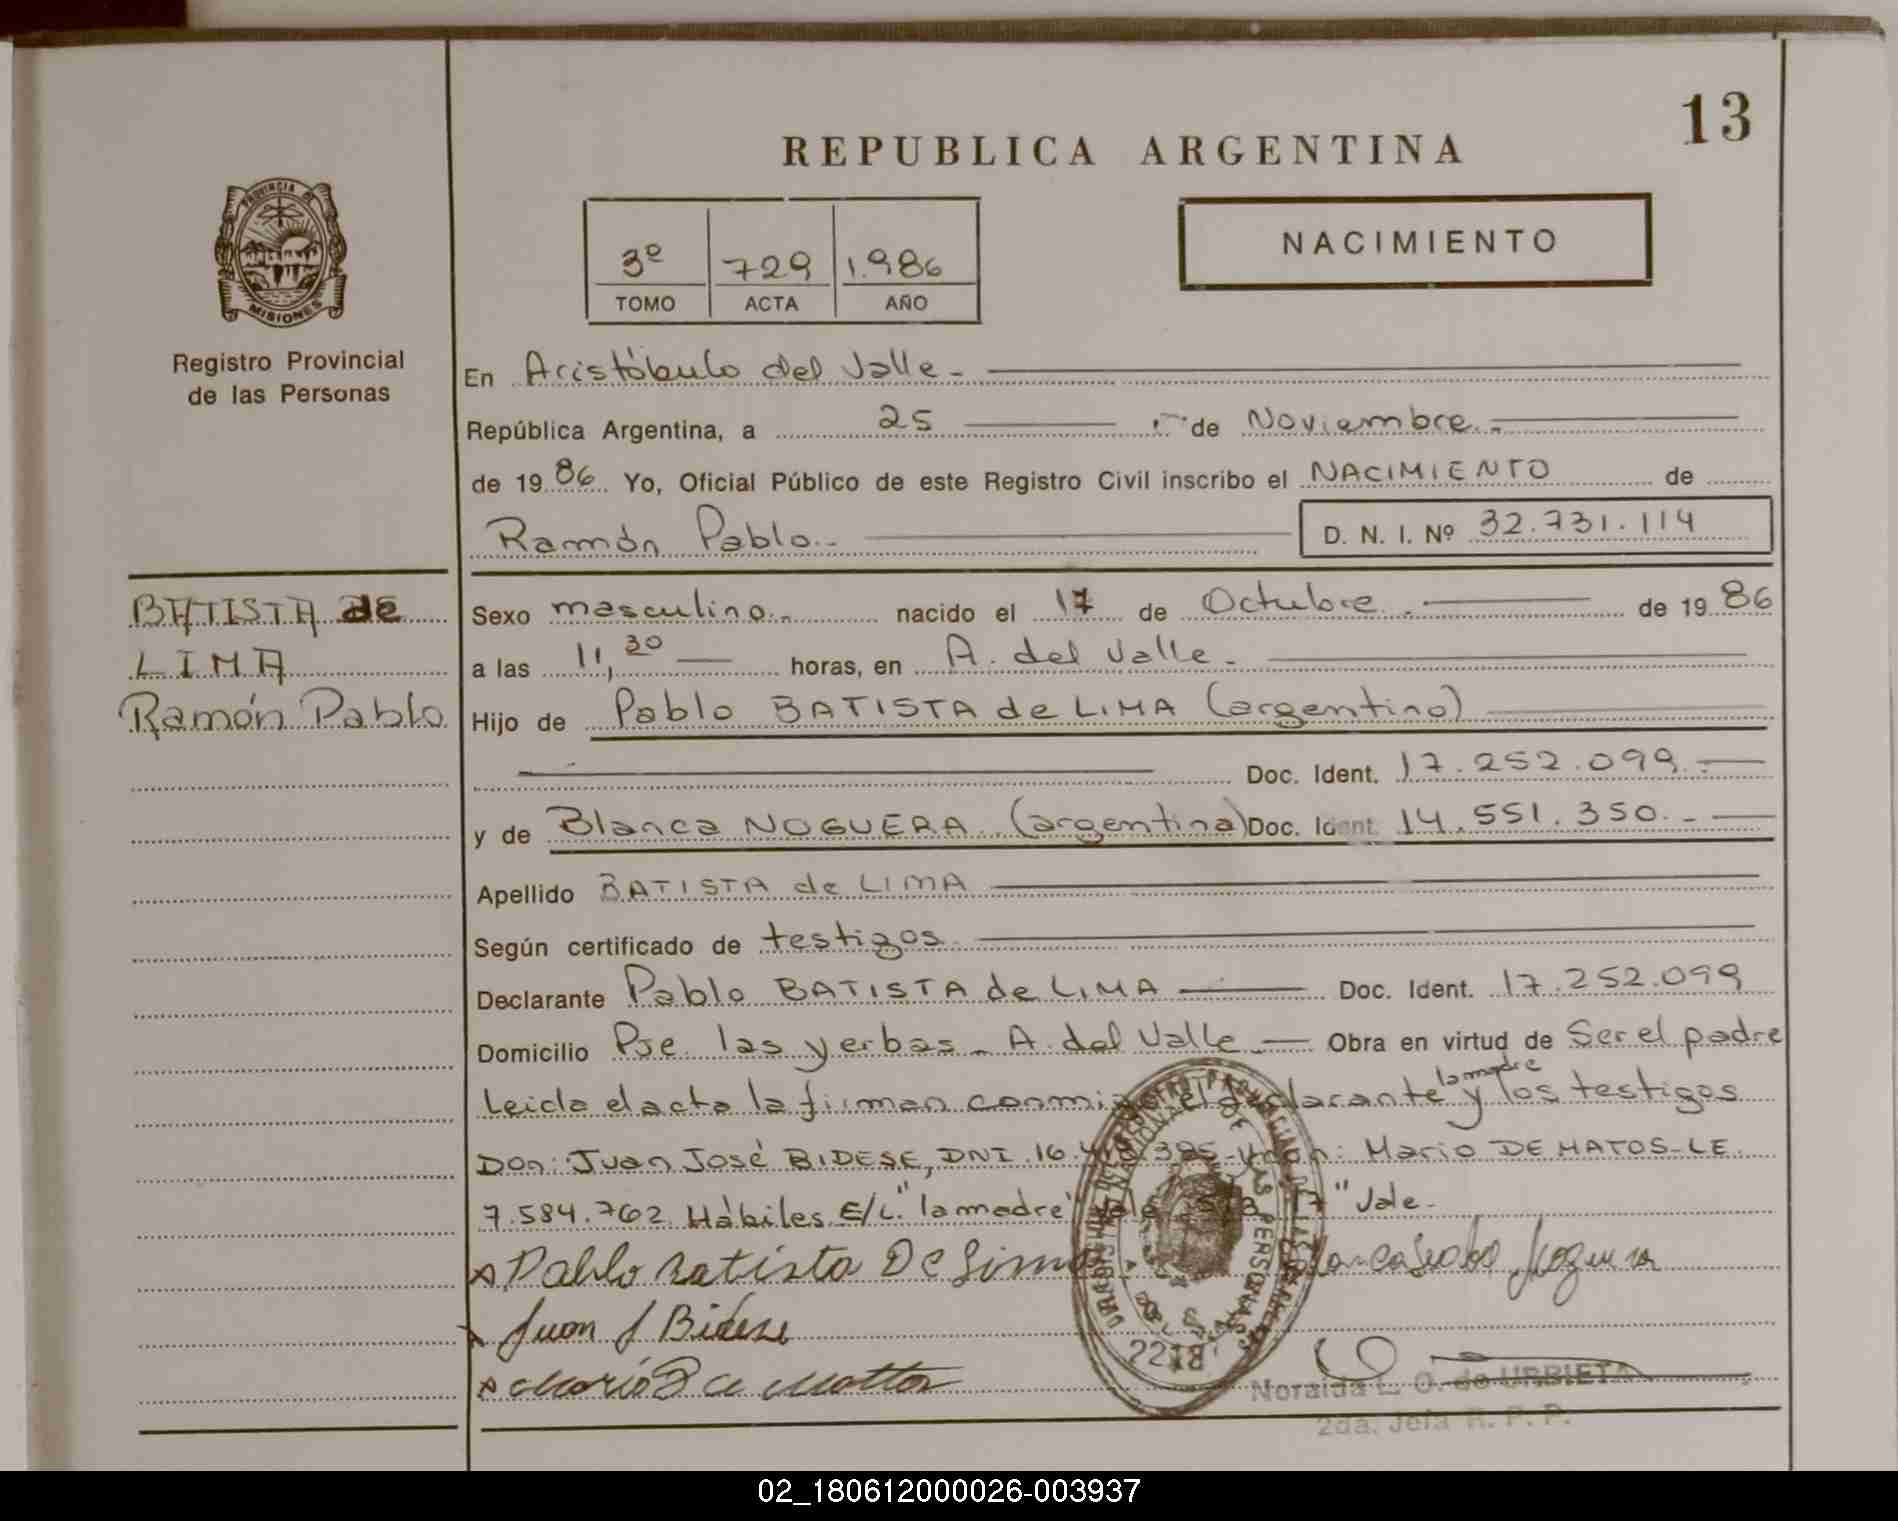 13
REPUBLICA ARGENTINA
PROVINCIA DE
MISIONES
Registro Provincial
de las Personas
3º 729 1.986
TOMO ACTA AÑO
NACIMIENTO
En Aristóbulo del Valle.-
República Argentina, a 25 de Noviembre.-
de 1986 Yo, Oficial Público de este Registro Civil inscribo el NACIMIENTO de
Ramón Pablo.- D. N. I. Nº 32.731.114
BATISTA de
LIMA
Ramón Pablo
Sexo masculino.- nacido el 17 de Octubre.- de 1986
a las 11,30 horas, en A. del Valle.-
Hijo de Pablo BATISTA de LIMA (argentino)
Doc. Ident. 17.252.099.-
y de Blanca NOGUERA (argentina) Doc. Ident. 14.551.350.-
Apellido BATISTA de LIMA
Según certificado de testigos
Declarante Pablo BATISTA de LIMA Doc. Ident. 17.252.099
Domicilio Pje. las yerbas - A. del Valle.- Obra en virtud de Ser el padre
la madre
Leida el acta la firman conmigo el declarante y los testigos
Don: Juan José BIDESE, DNI 16. 385- y don: Mario DE MATOS-LE.
7.584.762 Hábiles E/L. "la madre" "17" Vale.-
Pablo Batista De Lima Noguera
Juan J Bidese
Mario De Mattos
2218
Noraida L. O. de URBIETA
2da. Jefa R. P. P.
02_180612000026-003937